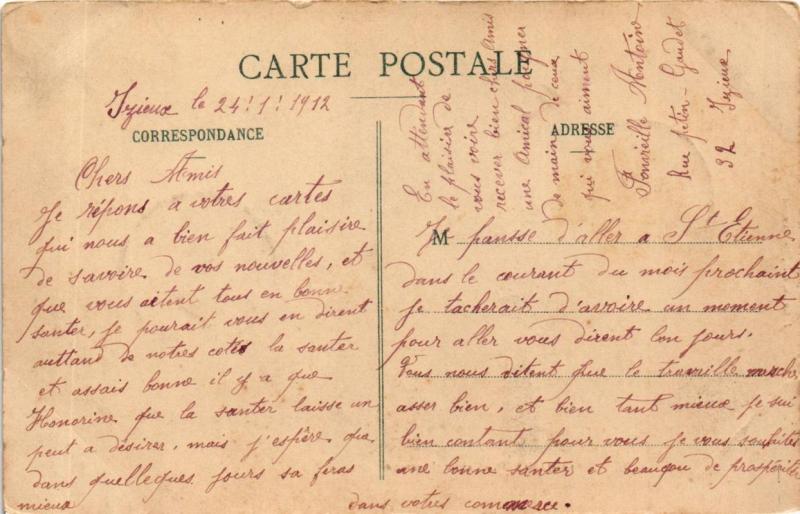 CARTE POSTALE
Izieux le 24!1!1912
CORRESPONDANCE
ADRESSE
Chers Amis
Je répons a votres cartes
qui nous a bien fait plaisire
de savoire de vos nouvelles, et
que vous aitent tous en bonne
santer, je pourait vous en dirent
auttand de notres cotés la santer
et assais bonne il y a que
Honorine que la santer laisse un
peut a désirer, mais j'espère que
dans quellecques jours sa feras
mieux
M
Je pansse d'aller a St Etienne
dans le courant du mois prochaint
je tacherait d'avoire un moment
pour aller vous dirent bon jours.
Vous nous ditent que le travaille marche
asser bien, et bien tant mieux je sui
bien contant pour vous je vous souhites
une bonne santer et beaucou de prospérité
dans votres commerce.
En attendant
le plaisir de
vous voire
recever bien chers Amis
une amical poigner
de main de ceux
qui vous aiment
Antoine
Rue petin-Gaudet
32 Izieux